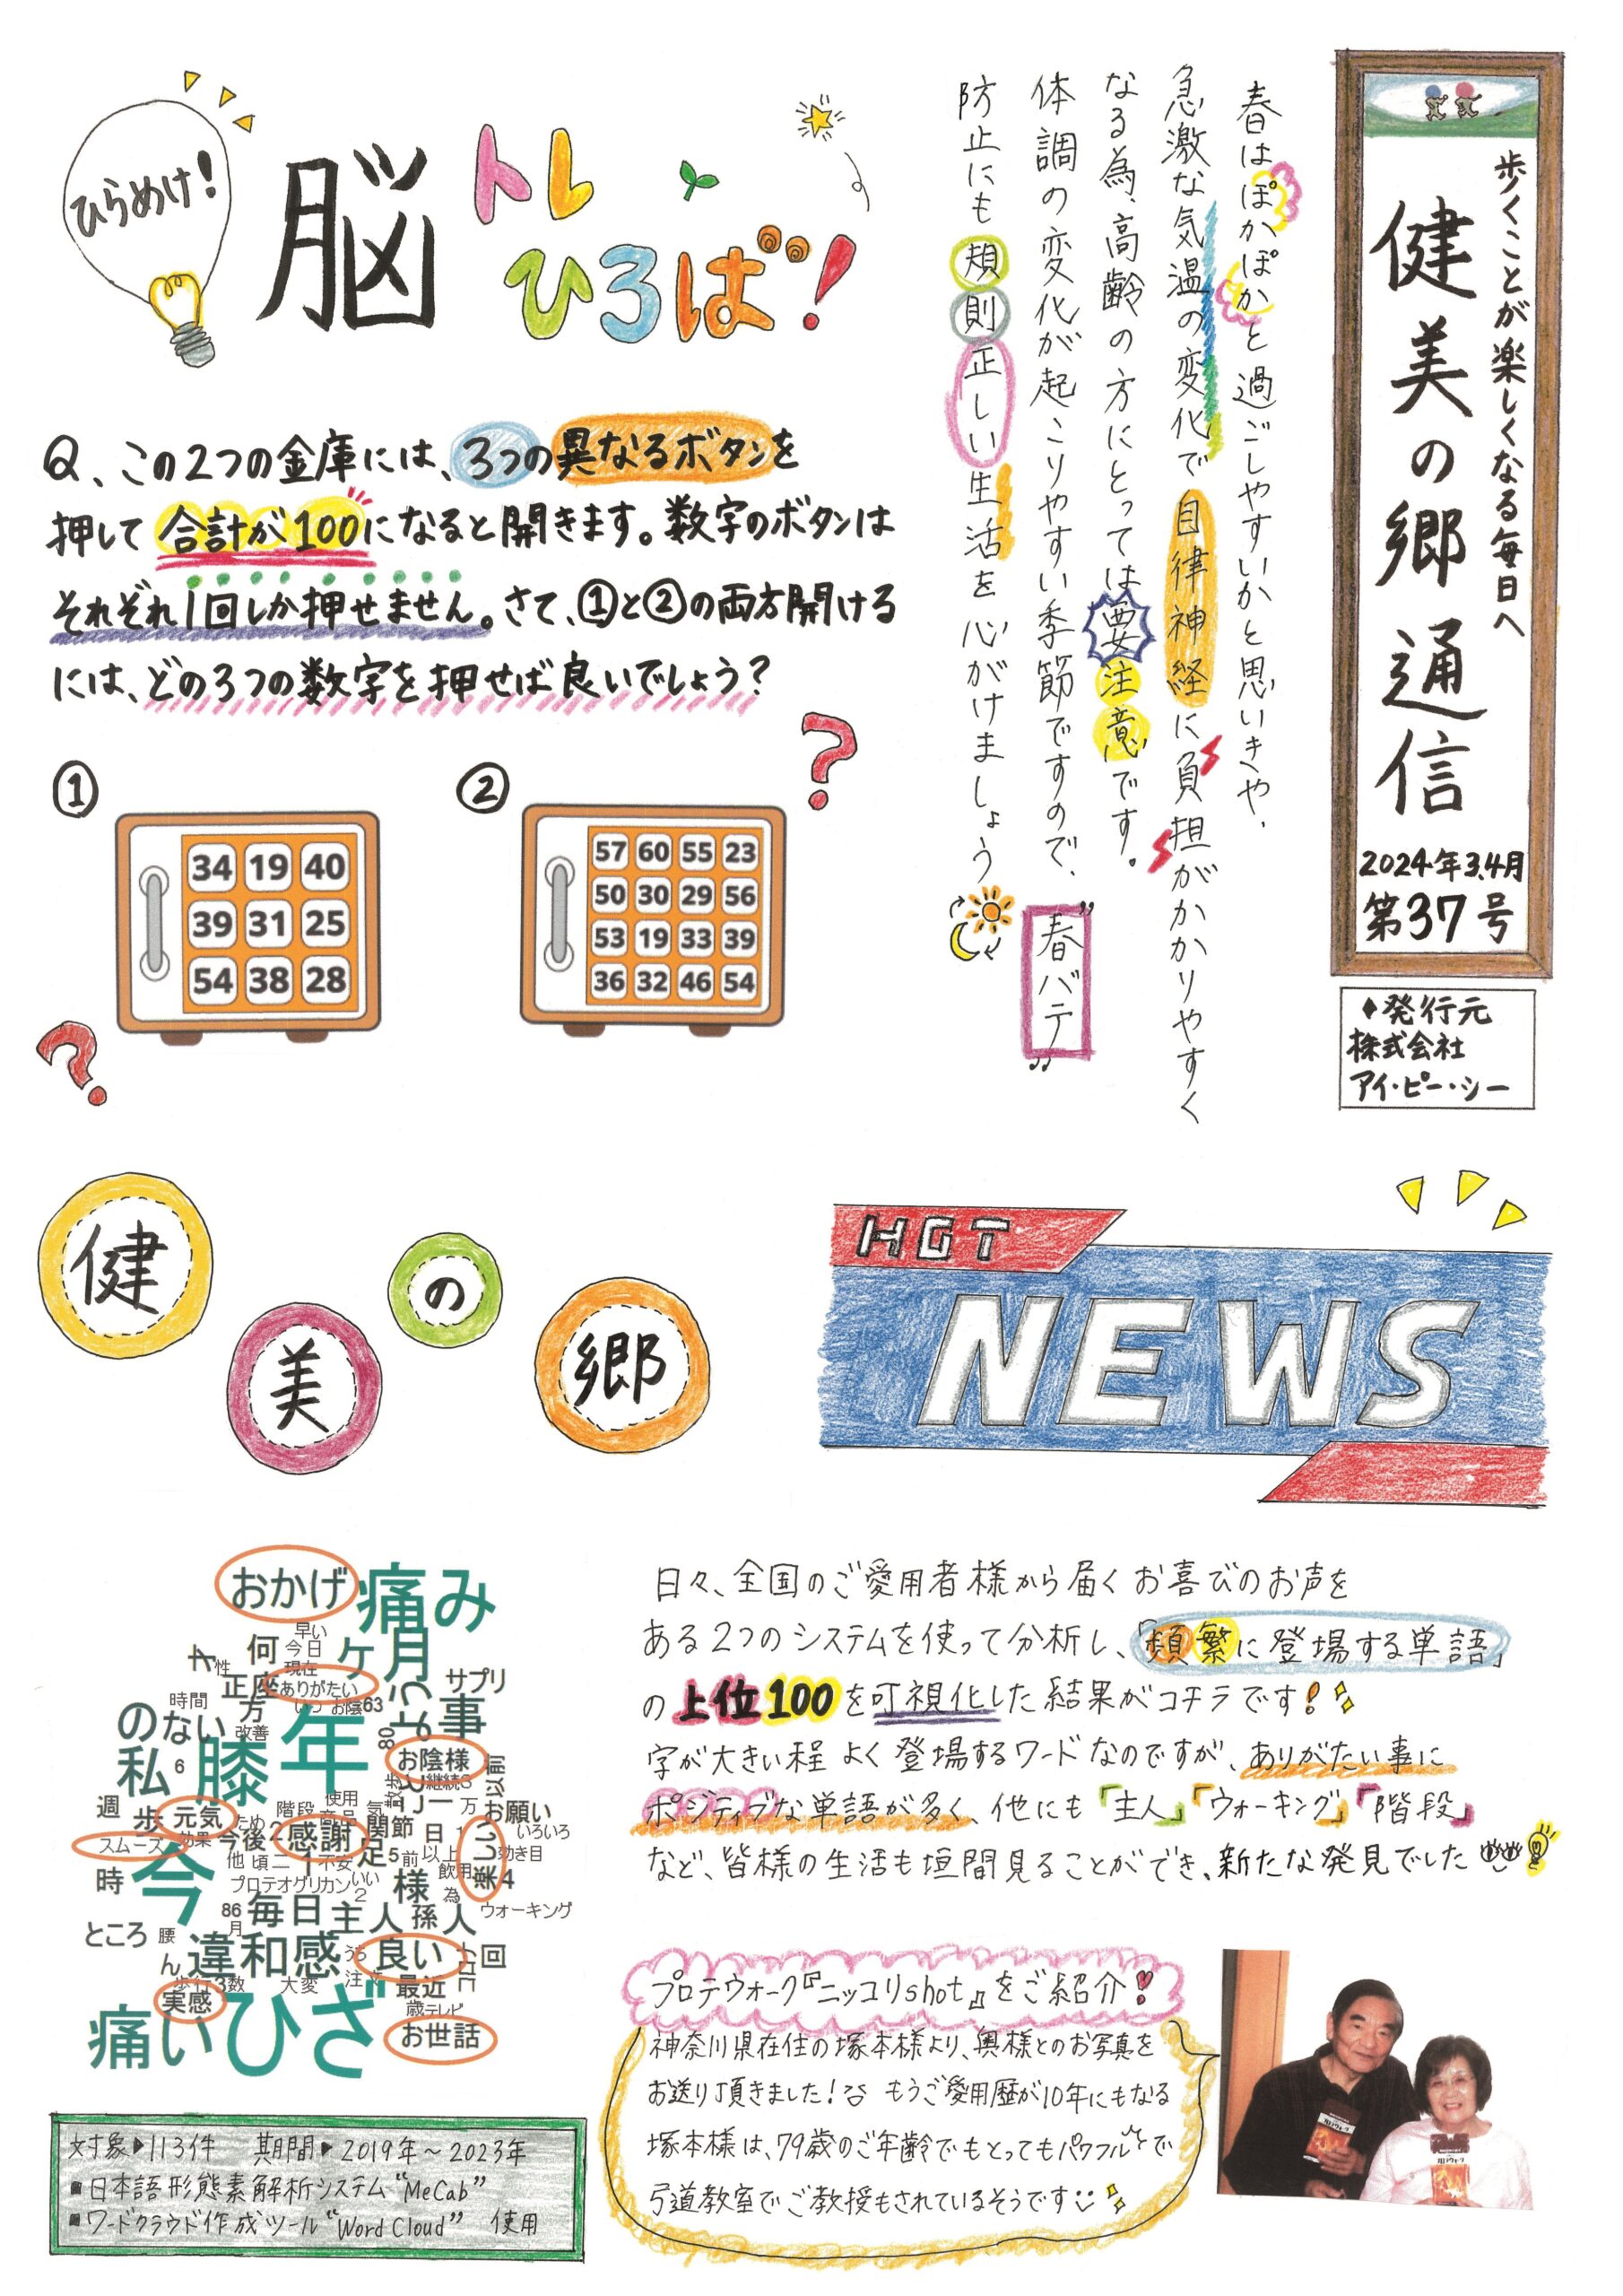 歩くことが楽しくなる毎日へ
健美の郷通信
2024年3.4月
第37号
◆発行元
株式会社
アイ・ピー・シー
春はぽかぽかと過ごしやすいかと思いきや、
急激な気温の変化で自律神経に負担がかかりやすく
なる為、高齢の方にとっては要注意です。
体調の変化が起こりやすい季節ですので、"春バテ"
防止にも規則正しい生活を心がけましょう
ひらめけ!
脳トレひろば!
Q、この2つの金庫には、3つの異なるボタンを
押して合計が100になると開きます。数字のボタンは
それぞれ1回しか押せません。さて、①と②の両方開ける
には、どの3つの数字を押せば良いでしょう?
①
34 19 40
39 31 25
54 38 28
②
57 60 55 23
50 30 29 56
53 19 33 39
36 32 46 54
?
?
健美の郷
HGT
NEWS
おかげ
痛み
早い
何
今日
ヶ月
才
性
現在
正座
ありがたい
サプリ
時間
方
お陰
63
のない
改善
年
80
事
私
6
膝
お陰様
以前
継続
3
散歩
週
歩
元気
ため
階段
使用
商品
気
万
お願い
いろいろ
スムーズ
効果
今後
2
感謝
関節
日
1
楽しい
効き目
他
頃
二
不安
足
5
前
以上
飲用
4
時
今
プロテオグリカン
いい
2
様
為
ウォーキング
86
月
毎日
主人
孫
人
ところ
腰
ん
違和感
うち
良い
回
歩行
3
数
大変
注文
最近
実感
歳
テレビ
痛い
ひざ
お世話
対象▶113件 期間▶2019年〜2023年
■日本語形態素解析システム"MeCab"
■ワードクラウド作成ツール"Word Cloud" 使用
日々、全国のご愛用者様から届くお喜びのお声を
ある2つのシステムを使って分析し、「頻繁に登場する単語」
の上位100を可視化した結果がコチラです!
字が大きい程よく登場するワードなのですが、ありがたい事に
ポジティブな単語が多く、他にも「主人」「ウォーキング」「階段」
など、皆様の生活も垣間見ることができ、新たな発見でした
プロテウォーク『ニッコリshot』をご紹介!
神奈川県在住の塚本様より、奥様とのお写真を
お送り頂きました! もうご愛用歴が10年にもなる
塚本様は、79歳のご年齢でもとってもパワフルで
弓道教室でご教授もされているそうです